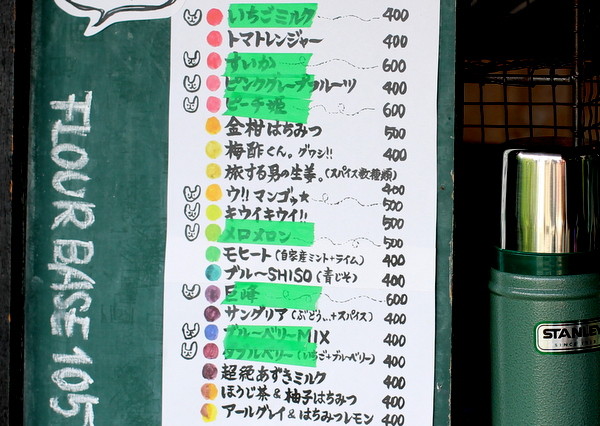 いちごミルク 400
トマトレンジャー 400
すいか 600
ピンクグレープフルーツ 400
ピーチ姫 600
金柑はちみつ 500
梅酢くん。グワシ!! 400
旅する男の生姜。(スパイス数種類) 400
ウ!!マンゴッ★ 500
キウイキウイ!! 500
メロメロン 500
モヒート(自家産ミント+ライム) 400
ブル〜SHISO(青じそ) 400
巨峰 600
サングリア(ぶどう、、+スパイス) 400
ブル〜ベリーMIX 400
ダブルベリー(いちご+ブル〜ベリー) 400
超絶あずきミルク 400
ほうじ茶&柚子はちみつ 400
アールグレイ&はちみつレモン 400
FLOUR BASE 105
STANLEY